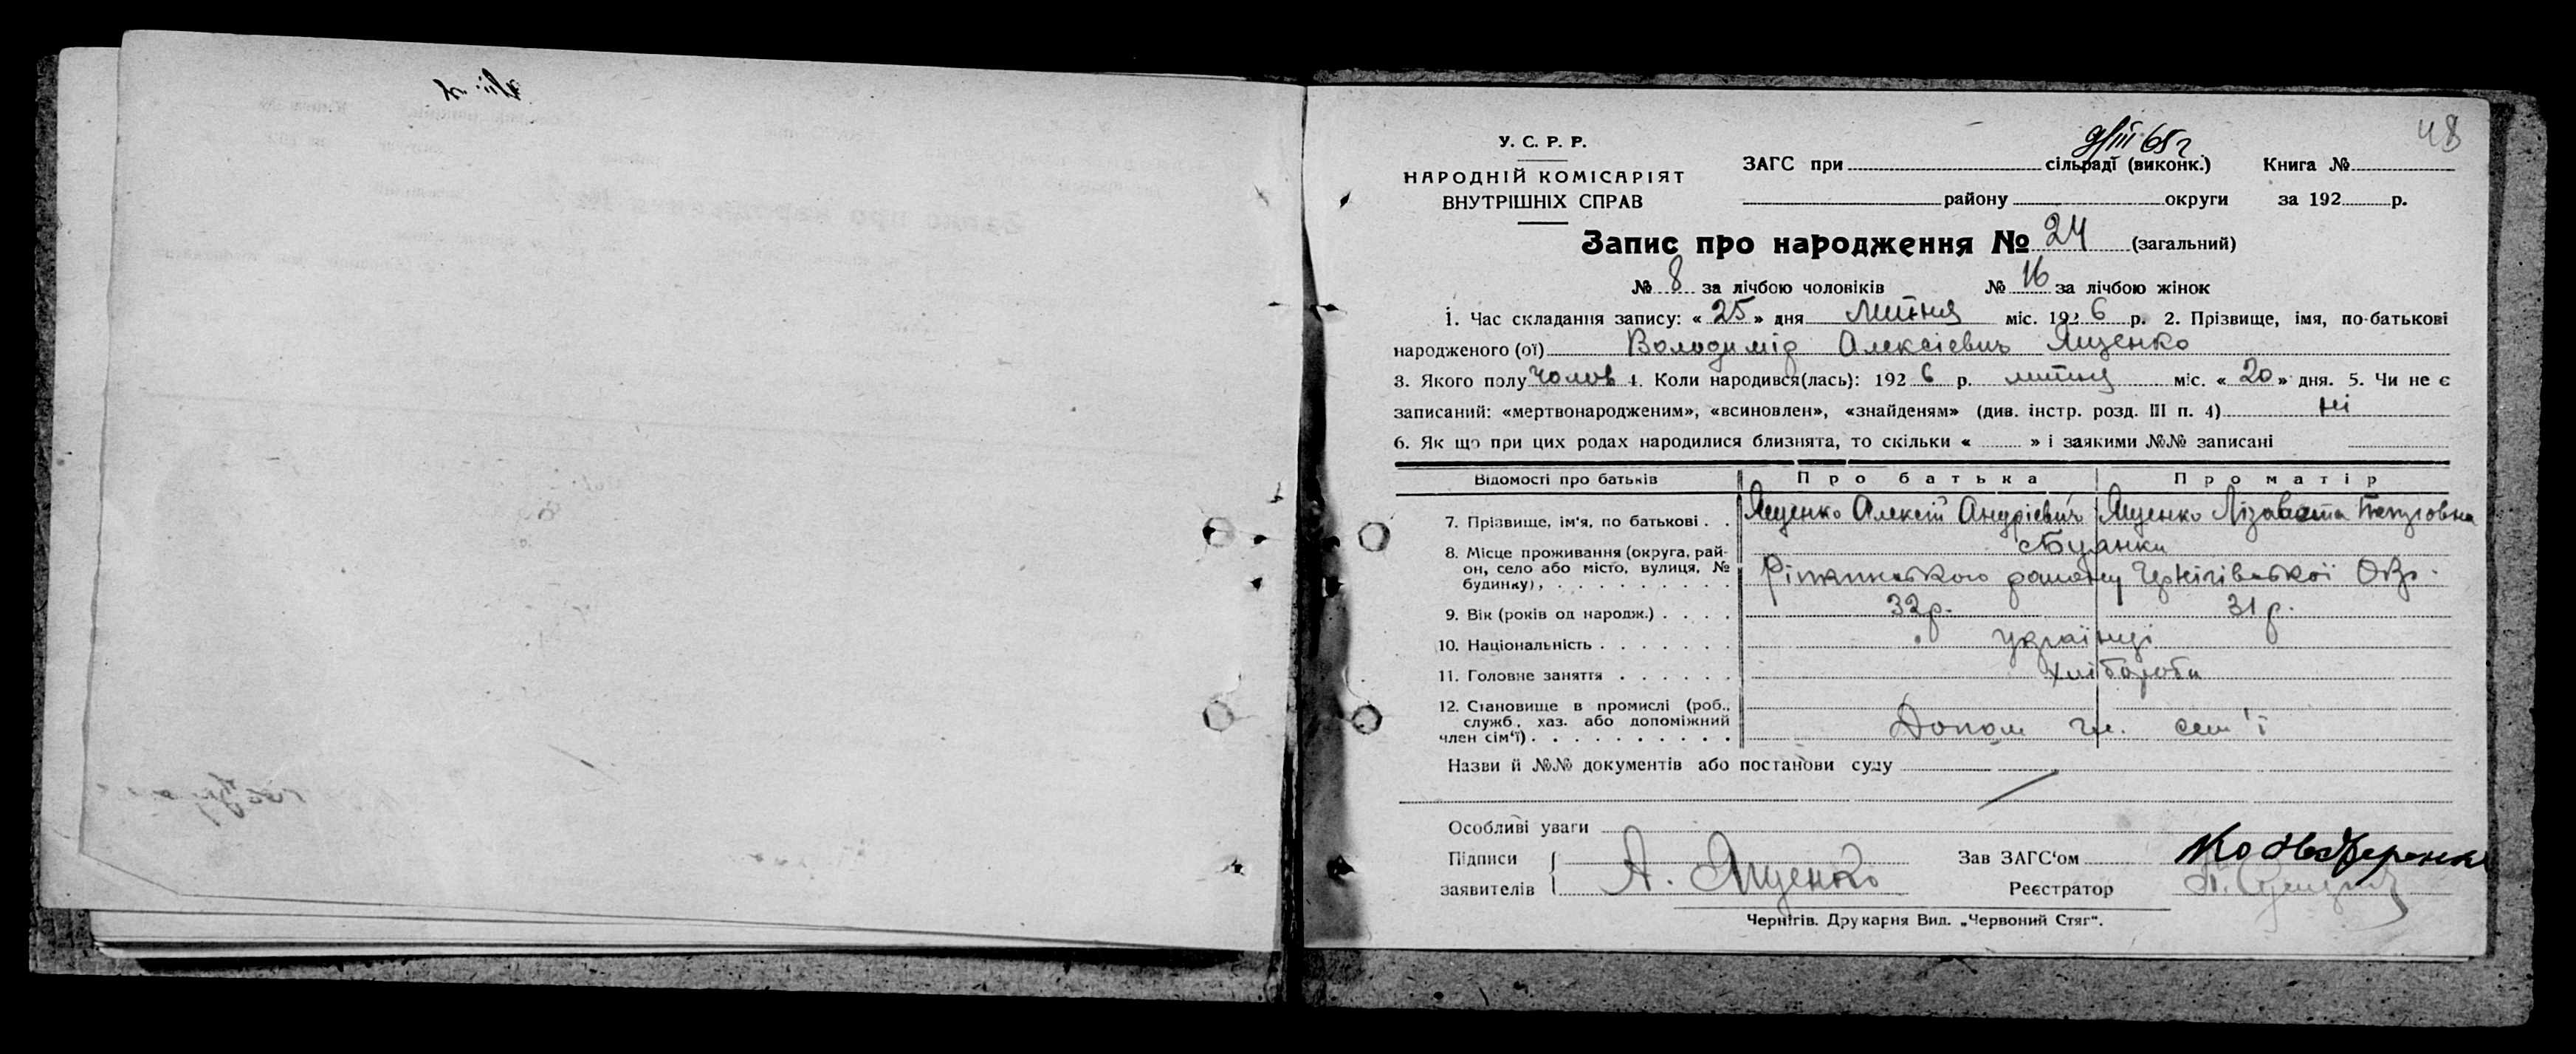 48
9/III 65 г
У. С. Р. Р.
НАРОДНІЙ КОМІСАРІЯТ
ВНУТРІШНІХ СПРАВ
ЗАГС при сільраді (виконк.) Книга №
району округи за 192 р.
Запис про народження № 24 (загальний)
№ 8 за лічбою чоловіків № 16 за лічбою жінок
1. Час складання запису: « 25 » дня липня міс. 1926 р. 2. Прізвище, імя, по-батькові
народженого (ої) Володимір Алексієвич Яценко
3. Якого полу чолов 4. Коли народився(лась): 1926 р. липня міс. « 20 » дня. 5. Чи не є
записаний: «мертвонародженим», «всиновлен», «знайденям» (див. інстр. розд. III п. 4) ні
6. Як що при цих родах народилися близнята, то скільки « » і заякими №№ записані
Відомості про батьків Про батька Про матір
7. Прізвище, ім'я, по батькові . . Яценко Алексій Андрієвич Яценко Лізавета
8. Місце проживання (округа, рай-
он, село або місто, вулиця, №
будинку), Ріпкинського району Чернігівської Окр.
9. Вік (років од народж.) . . . . 32 р. 31 р.
10. Національність . . . . . . . українці
11. Головне заняття . . . . . . хлібороби
12. Становище в промислі (роб.,
служб., хаз. або допоміжний
член сім'ї) . . . . . . . . . . Допом чл. сем'ї
Назви й №№ документів або постанови суду
Особливі уваги
Підписи
заявителів А. Яценко
Зав ЗАГС'ом
Реєстратор
Чернігів. Друкарня Вид. „Червоний Стяг“.